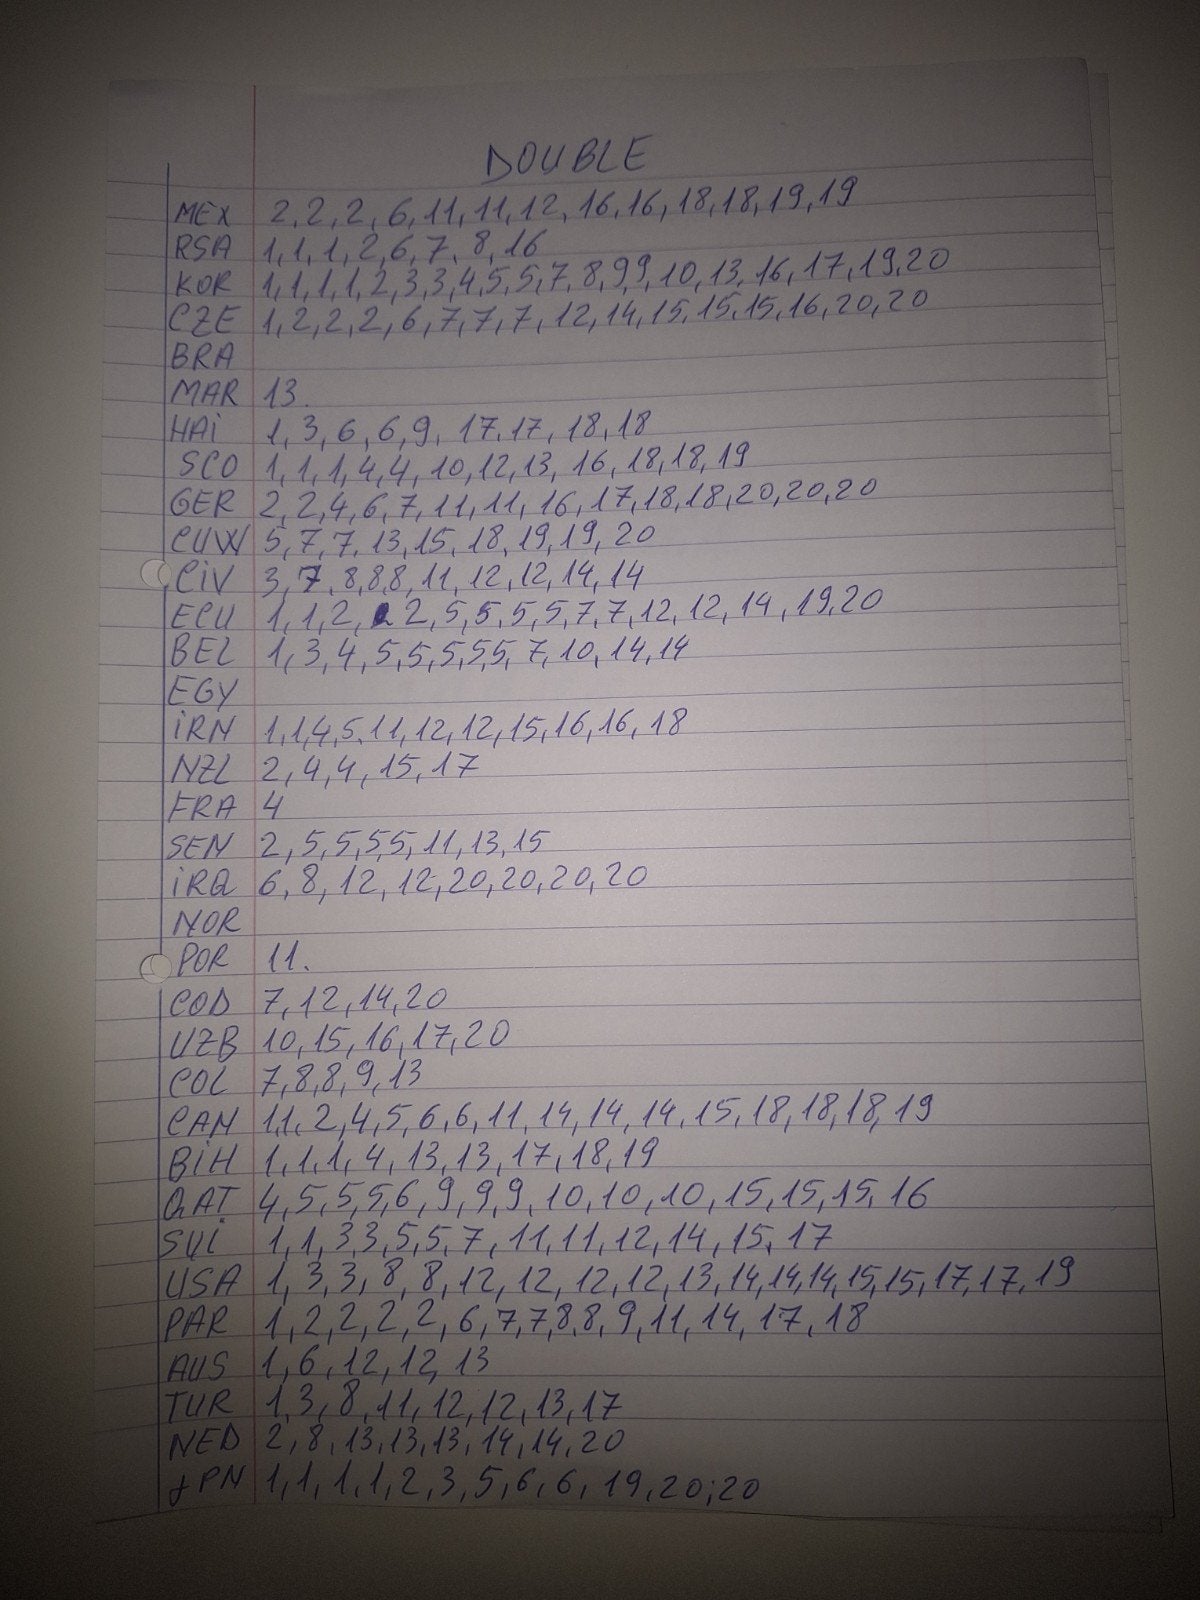 DOUBLE
MEX 2,2,2,6,11,11,12,16,16,18,18,19,19
RSA 1,1,1,2,6,7,8,16
KOR 1,1,1,1,2,3,3,4,5,5,7,8,9,9,10,13,16,17,19,20
CZE 1,2,2,2,6,7,7,7,12,14,15,15,15,16,20,20
BRA
MAR 13.
HAi 1,3,6,6,9,17,17,18,18
SCO 1,1,1,4,4,10,12,13,16,18,18,19
GER 2,2,4,6,7,11,11,16,17,18,18,20,20,20
CUW 5,7,7,13,15,18,19,19,20
CiV 3,7,8,8,8,11,12,12,14,14
ECU 1,1,2,2,5,5,5,5,7,7,12,12,14,19,20
BEL 1,3,4,5,5,5,5,5,7,10,14,14
EGY
iRN 1,1,4,5,11,12,12,15,16,16,18
NZL 2,4,4,15,17
FRA 4
SEN 2,5,5,5,5,11,13,15
iRQ 6,8,12,12,20,20,20,20
NOR
POR 11.
COD 7,12,14,20
UZB 10,15,16,17,20
COL 7,8,8,9,13
CAN 1,1,2,4,5,6,6,11,14,14,14,15,18,18,18,19
BiH 1,1,1,4,13,13,17,18,19
QAT 4,5,5,5,6,9,9,9,10,10,10,15,15,15,16
SUi 1,1,3,3,5,5,7,11,11,12,14,15,17
USA 1,3,3,8,8,12,12,12,12,13,14,14,14,15,15,17,17,19
PAR 1,2,2,2,2,6,7,7,8,8,9,11,14,17,18
AUS 1,6,12,12,13
TUR 1,3,8,11,12,12,13,17
NED 2,8,13,13,13,14,14,20
JPN 1,1,1,1,2,3,5,6,6,19,20;20